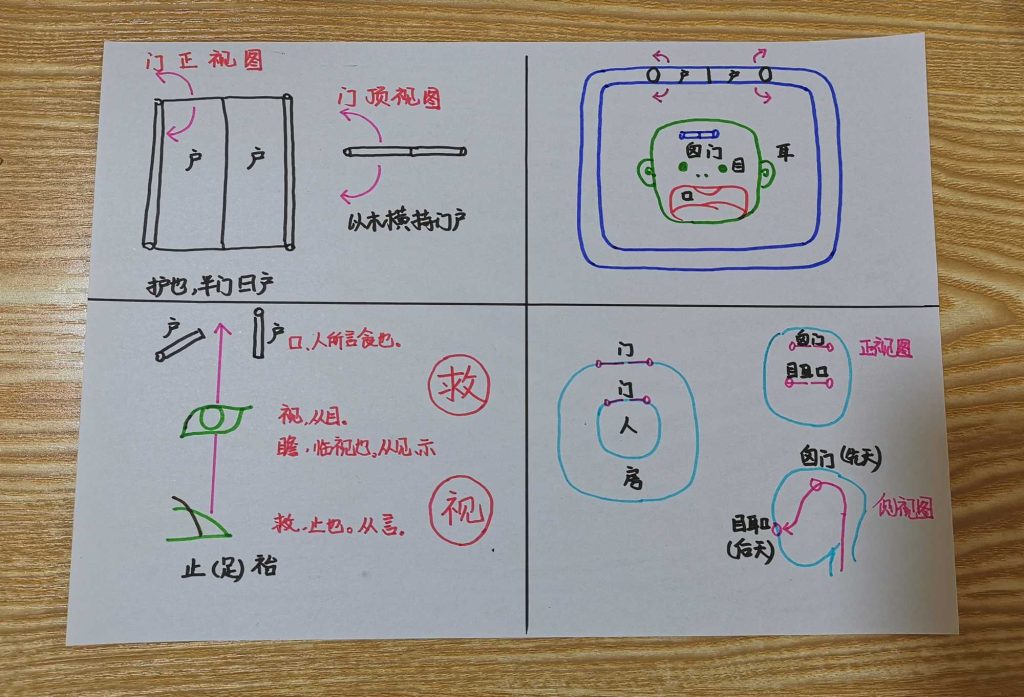 门正视图
户 户
护也,半门曰户
门顶视图
以木横持门户
户 户
囟门
目 耳
口
户 户
口、人所言食也。
救
视,从目。
瞻,临视也。从见、示
视
救,止也。从言。
止(足)
门
门
人
房
囟门
目耳口
正视图
囟门(先天)
侧视图
目耳口
(后天)